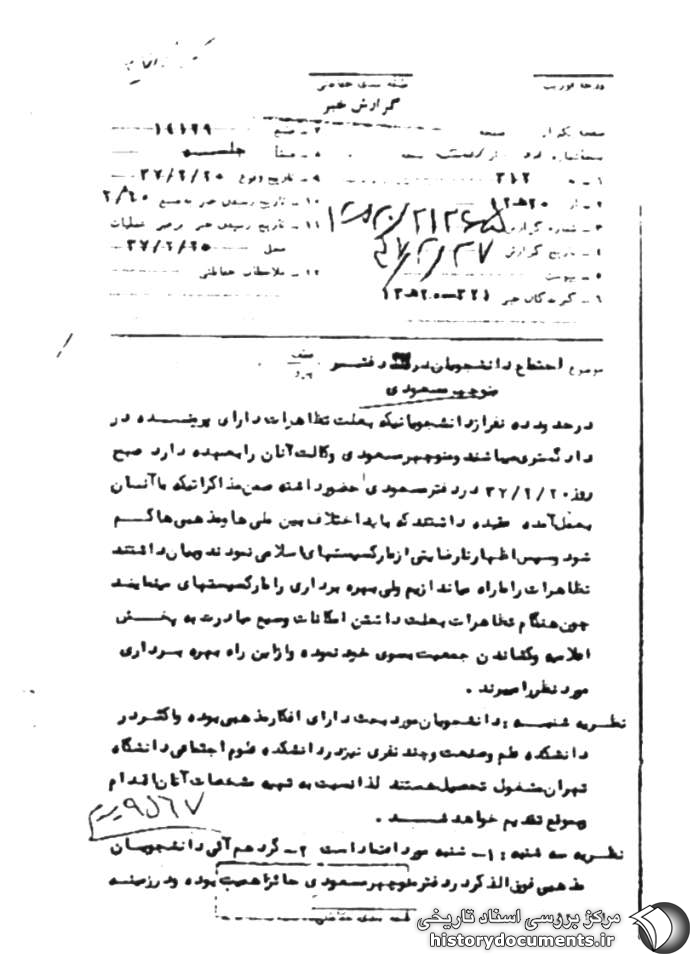 درجه فوریت
طبقه بندی حفاظتی
گزارش خبر
صفحه یکم از صفحه
۱ - به ۳۱۲
۲ - از ۲۰ هـ ۱۲
۳ - شماره گزارش
۴ - تاریخ گزارش ۳۷/۲/۲۷
۵ - پیوست
۶ - گیرندگان خبر ۳۲۱ - ۲۰ هـ ۱۳
۷ - منبع ۱۴۱۲۹
۸ - منشأ جلسه
۹ - تاریخ وقوع ۳۷/۲/۲۰
۱۰ - تاریخ رسیدن خبر به منبع
۱۱ - تاریخ رسیدن خبر برهبر عملیات
محل ۳۷/۲/۲۵
۱۲ - ملاحظات حفاظتی
موضوع اجتماع دانشجویان در دفتر
منوچهر مسعودی
در حدود ده نفر از دانشجویانیکه بعلت تظاهرات دارای پرونده در
دادگستری میباشند و منوچهر مسعودی وکالت آنان را بعهده دارد صبح
روز ۳۷/۲/۲۰ در دفتر مسعودی حضور داشته ضمن مذاکراتیکه با آنان
بعمل آمده عقیده داشتند که باید اختلاف بین ملی ها و مذهبی ها کم
شود و سپس اظهار نارضایتی از مارکسیستهای اسلامی نمودند و بیان داشتند
تظاهرات را ما راه میاندازیم ولی بهره برداری را مارکسیستهای مینمایند
چون هنگام تظاهرات بعلت داشتن امکانات وسیع مبادرت به پخش
اعلامیه و کشاندن جمعیت بسوی خود نموده و از این راه بهره برداری
مورد نظر را میبرند .
نظریه شنبه : دانشجویان مورد بحث دارای افکار مذهبی بوده و اکثر در
دانشکده علم و صنعت و چند نفری نیز در دانشکده علوم اجتماعی دانشگاه
تهران مشغول تحصیل هستند لذا نسبت به تهیه مشخصات آنان اقدام
و بموقع تقدیم خواهد شد .
نظریه سه شنبه : ۱- شنبه مورد اعتماد است ۲- گرد هم آئی دانشجویان
مذهبی فوق الذکر در دفتر منوچهر مسعودی حائز اهمیت بوده و در زمینه
مرکز بررسی اسناد تاریخی
historydocuments.ir